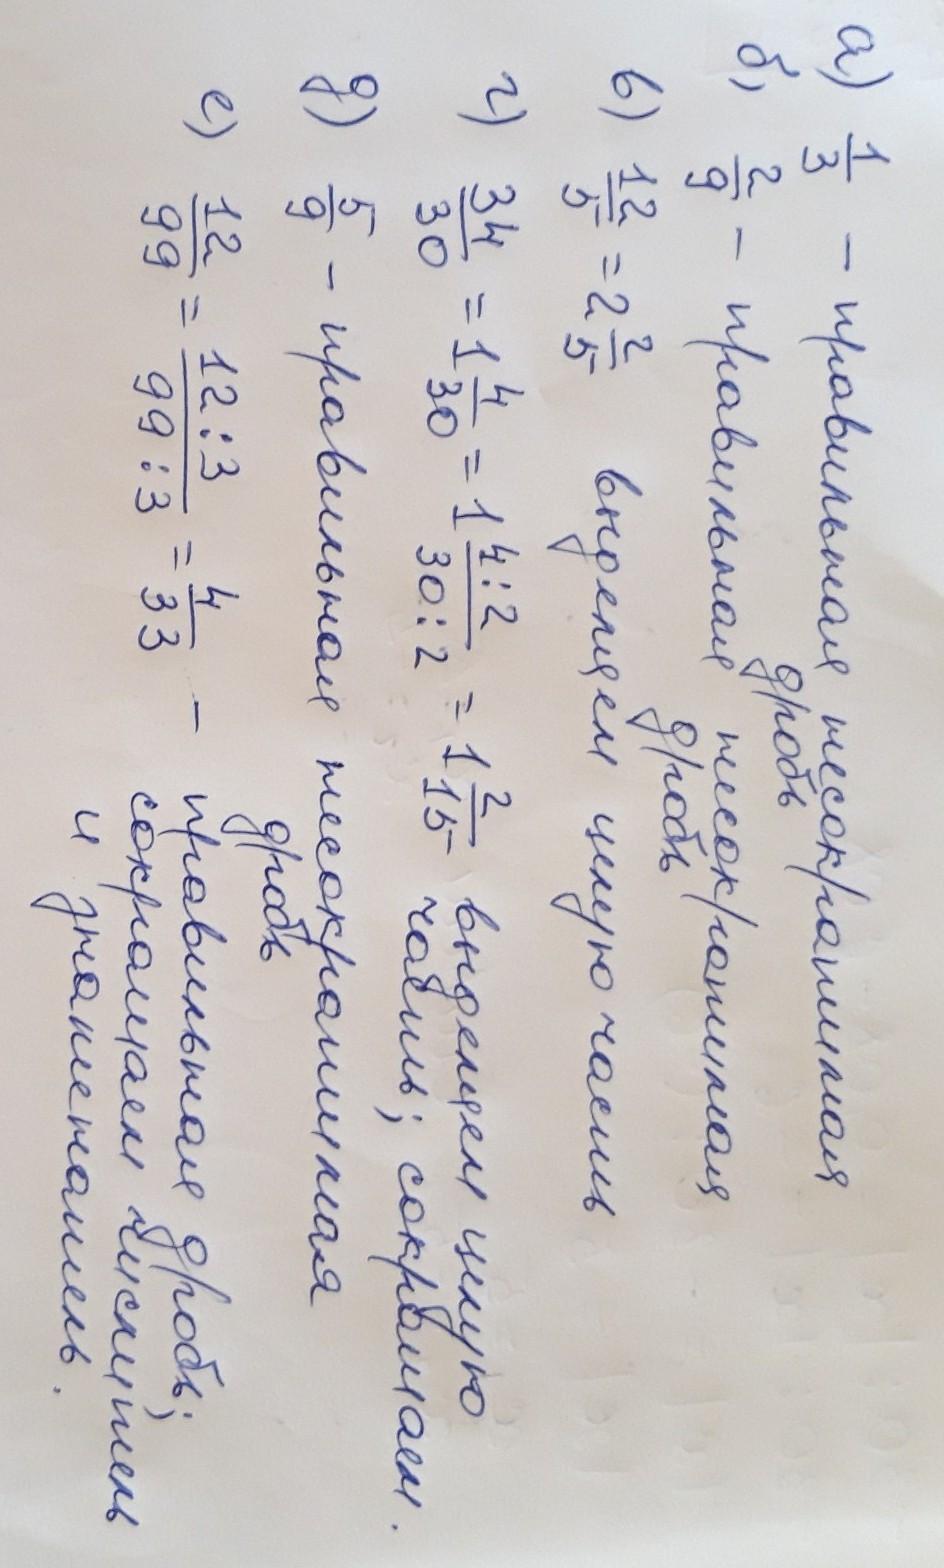 а) 1/3 - правильная несократимая
дробь
б) 2/9 - правильная несократимая
дробь
в) 12/5 = 2 2/5 выделяем целую часть
г) 34/30 = 1 4/30 = 1 4:2/30:2 = 1 2/15 выделяем целую
часть; сокращаем.
д) 5/9 - правильная несократимая
дробь
е) 12/99 = 12:3/99:3 = 4/33 - правильная дробь;
сокращаем числитель
и знаменатель.